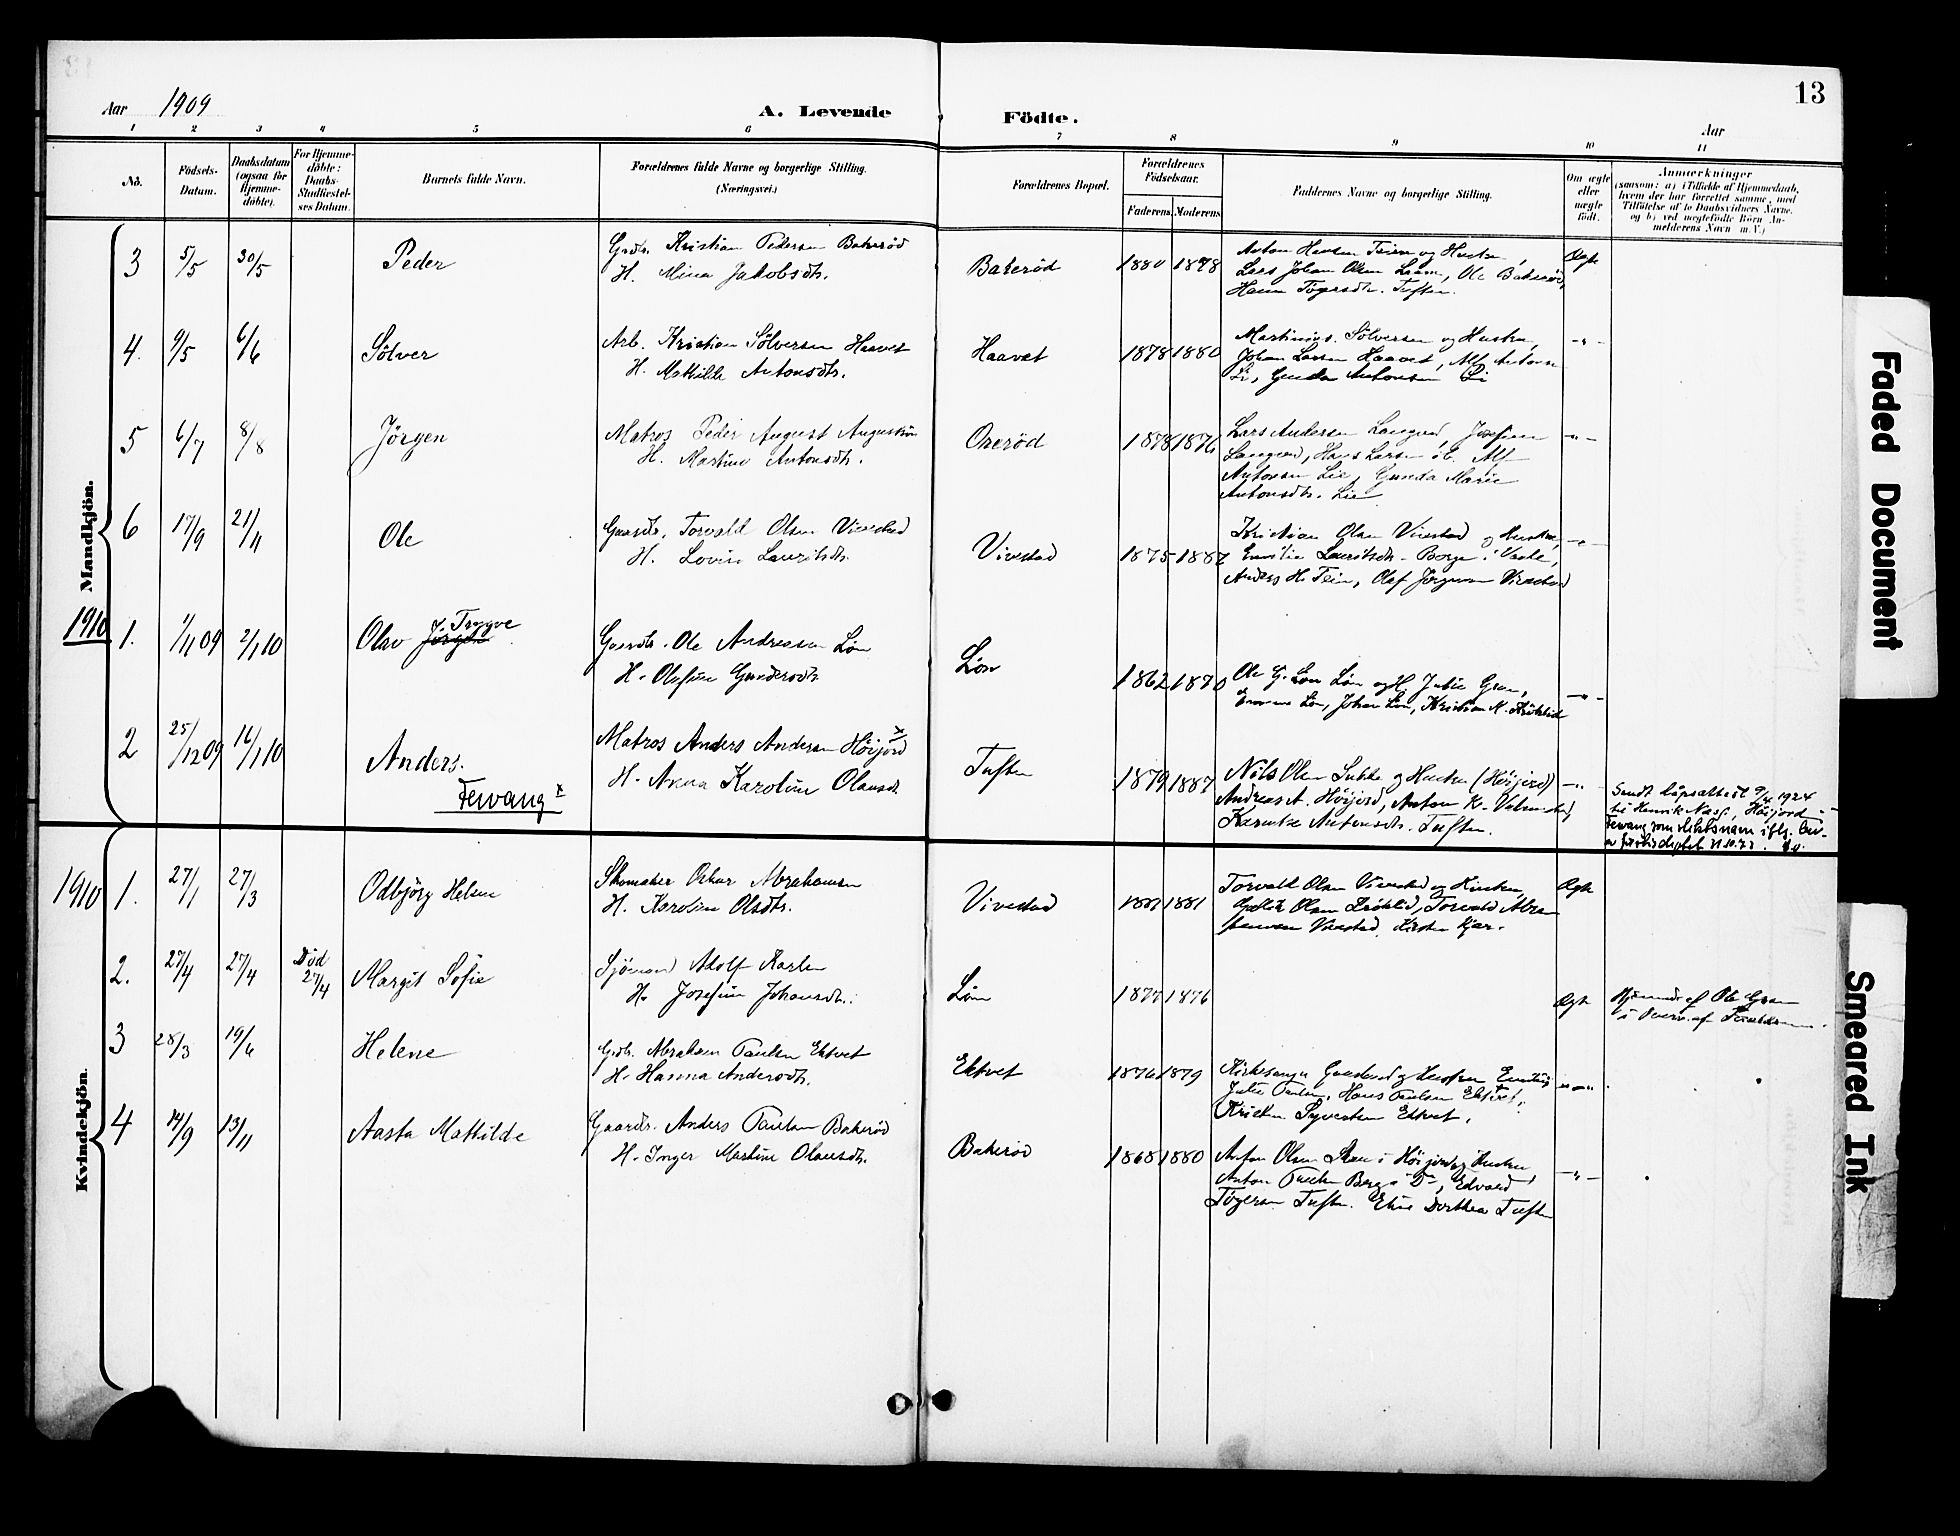 13
Aar 1909
A. Levende Födte.
Aar
1 2 3 4 5 6 7 8 9 10 11
No.
Födsels-Datum.
Daabsdatum (ogsaa for Hjemmedöbte).
For Hjemmedöbte: Daabs-Stadfæstelses Datum.
Barnets fulde Navn.
Forældrenes fulde Navne og borgerlige Stilling.
(Næringsvei.)
Forældrenes Bopæl.
Forældrenes Födselsaar.
Faderens. Moderens.
Faddernes Navne og borgerlige Stilling.
Om ægte eller uægte födt.
Anmærkninger
(saasom: a) i Tilfælde af Hjemmedaab,
hvem der har forrettet samme, med
Tilföielse af to Daabsvidners Navne.
og b) ved uægtefödte Börn An-
melderens Navn m. V.)
Mandkjön.
3 5/5 30/5 Peder
Grdb. Kristian Pedersen Bakerød
H. Mina Jakobsdtr.
Bakerød 1880 1878
Anton Hansen Teien og Hustru,
Lars Johan Olsen, Ole Bakerød,
Tuften.
Ægte
4. 9/5 6/6 Sölver
Arb. Kristian Sölversen Haavet
H. Matilde Antonsdtr.
Haavet 1878 1880
Martinius Sölversen og Hustru,
Johan Larsen Haavet, Alf Antonsen
Li, Gunda Antonsen Li
-"-
5 6/7 8/8 Jörgen
Matros Peder August Augustsen
H. Martine Antonsdtr.
Orerød 1878 1876
Lars Andersen Langved, Josefine
Langved, Hans Larsen ib. Alf
Antonsen Lie, Gunda Marie
Antonsdtr. Lie
-"-
6 17/9 21/11 Ole
Gaardb. Torvald Olsen Vivestad
H. Lovise Lauritsdtr.
Vivestad 1875 1882
Kristian Olsen Vivestad og Hustru,
Emilie Lauritsdtr. Borge i Vaale,
Anders H. Teien, Olaf Jörgensen Vivestad
-"-
1910
1. 1/11 09 2/1 10 Olav Jörgen Trygve
Gaardb. Ole Andreasen Løn
H. Olefine Gundersdtr.
Løn 1862 1870
Ole G. Løn og H. Julie Gran,
Emma Løn, Johan Løn, Kristian N.
-"-
2 25/12 09 16/1 10 Anders.
Fevang x
Matros Anders Andersen Höijord x
H. Anna Karoline Olausdtr.
Tuften 1879 1887
Nils Olsen og Hustru (Höijord)
Andreas A. Höijord, Anton K.
Antonsdtr. Tuften.
-"-
Sendt dåpsattest 9/4 1924
til Henrik Næss, Höijord
Fevang som slektsnavn ifig.
Kvindekjön.
1910
1. 27/1 27/3 Odbjörg Helene
Skomaker Oskar Abrahamsen
H. Karoline Olsdtr.
Vivestad 1881
Torvald Olsen Vivestad og Hustru,
Olsen, Torvald Abra-
hamsen Vivestad, Kirsten Kjær.
Ægte
2. 27/4 27/4 Död 27/4 Margit Sofie
Sjömand Adolf Karlsen
H. Josefine Johansdtr.
Løn 1877 1876
Ægte
Hjemmed. af Ole Gran
i Overv. af Forældrene.
3 28/3 19/6 Helene
Grdb. Abraham Paulsen Ektvet
H. Hanna Andersdtr.
Ektvet 1876 1879
Kirkesanger og Hustru
Julie Paulsen, Hans Paulsen Ektvet,
Kristen Syvertsen Ektvet.
-"-
4 14/9 13/11 Aasta Matilde
Gaardb. Anders Paulsen Bakerød
H. Inger Martine Olausdtr.
Bakerød 1868 1880
Anton Olsen i Höijord og Hustru,
Anton Paulsen Berg, Edvard
Tögersen Tuften. Eline Dorthea Tuften
-"-
Faded Document
Smeared Ink